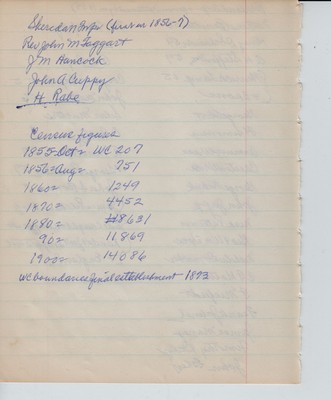 Sheridan Twp (first in 1856-7)
Rev John M Taggart
J M Hancock
John A Cuppy
H. Rabe
Census figures
1855-Oct= WC 207
1856=Aug= 751
1860= 1249
1870= 4452
1880= 8631
90= 11,869
1900= 14086
WC boundaries final establishment 1873